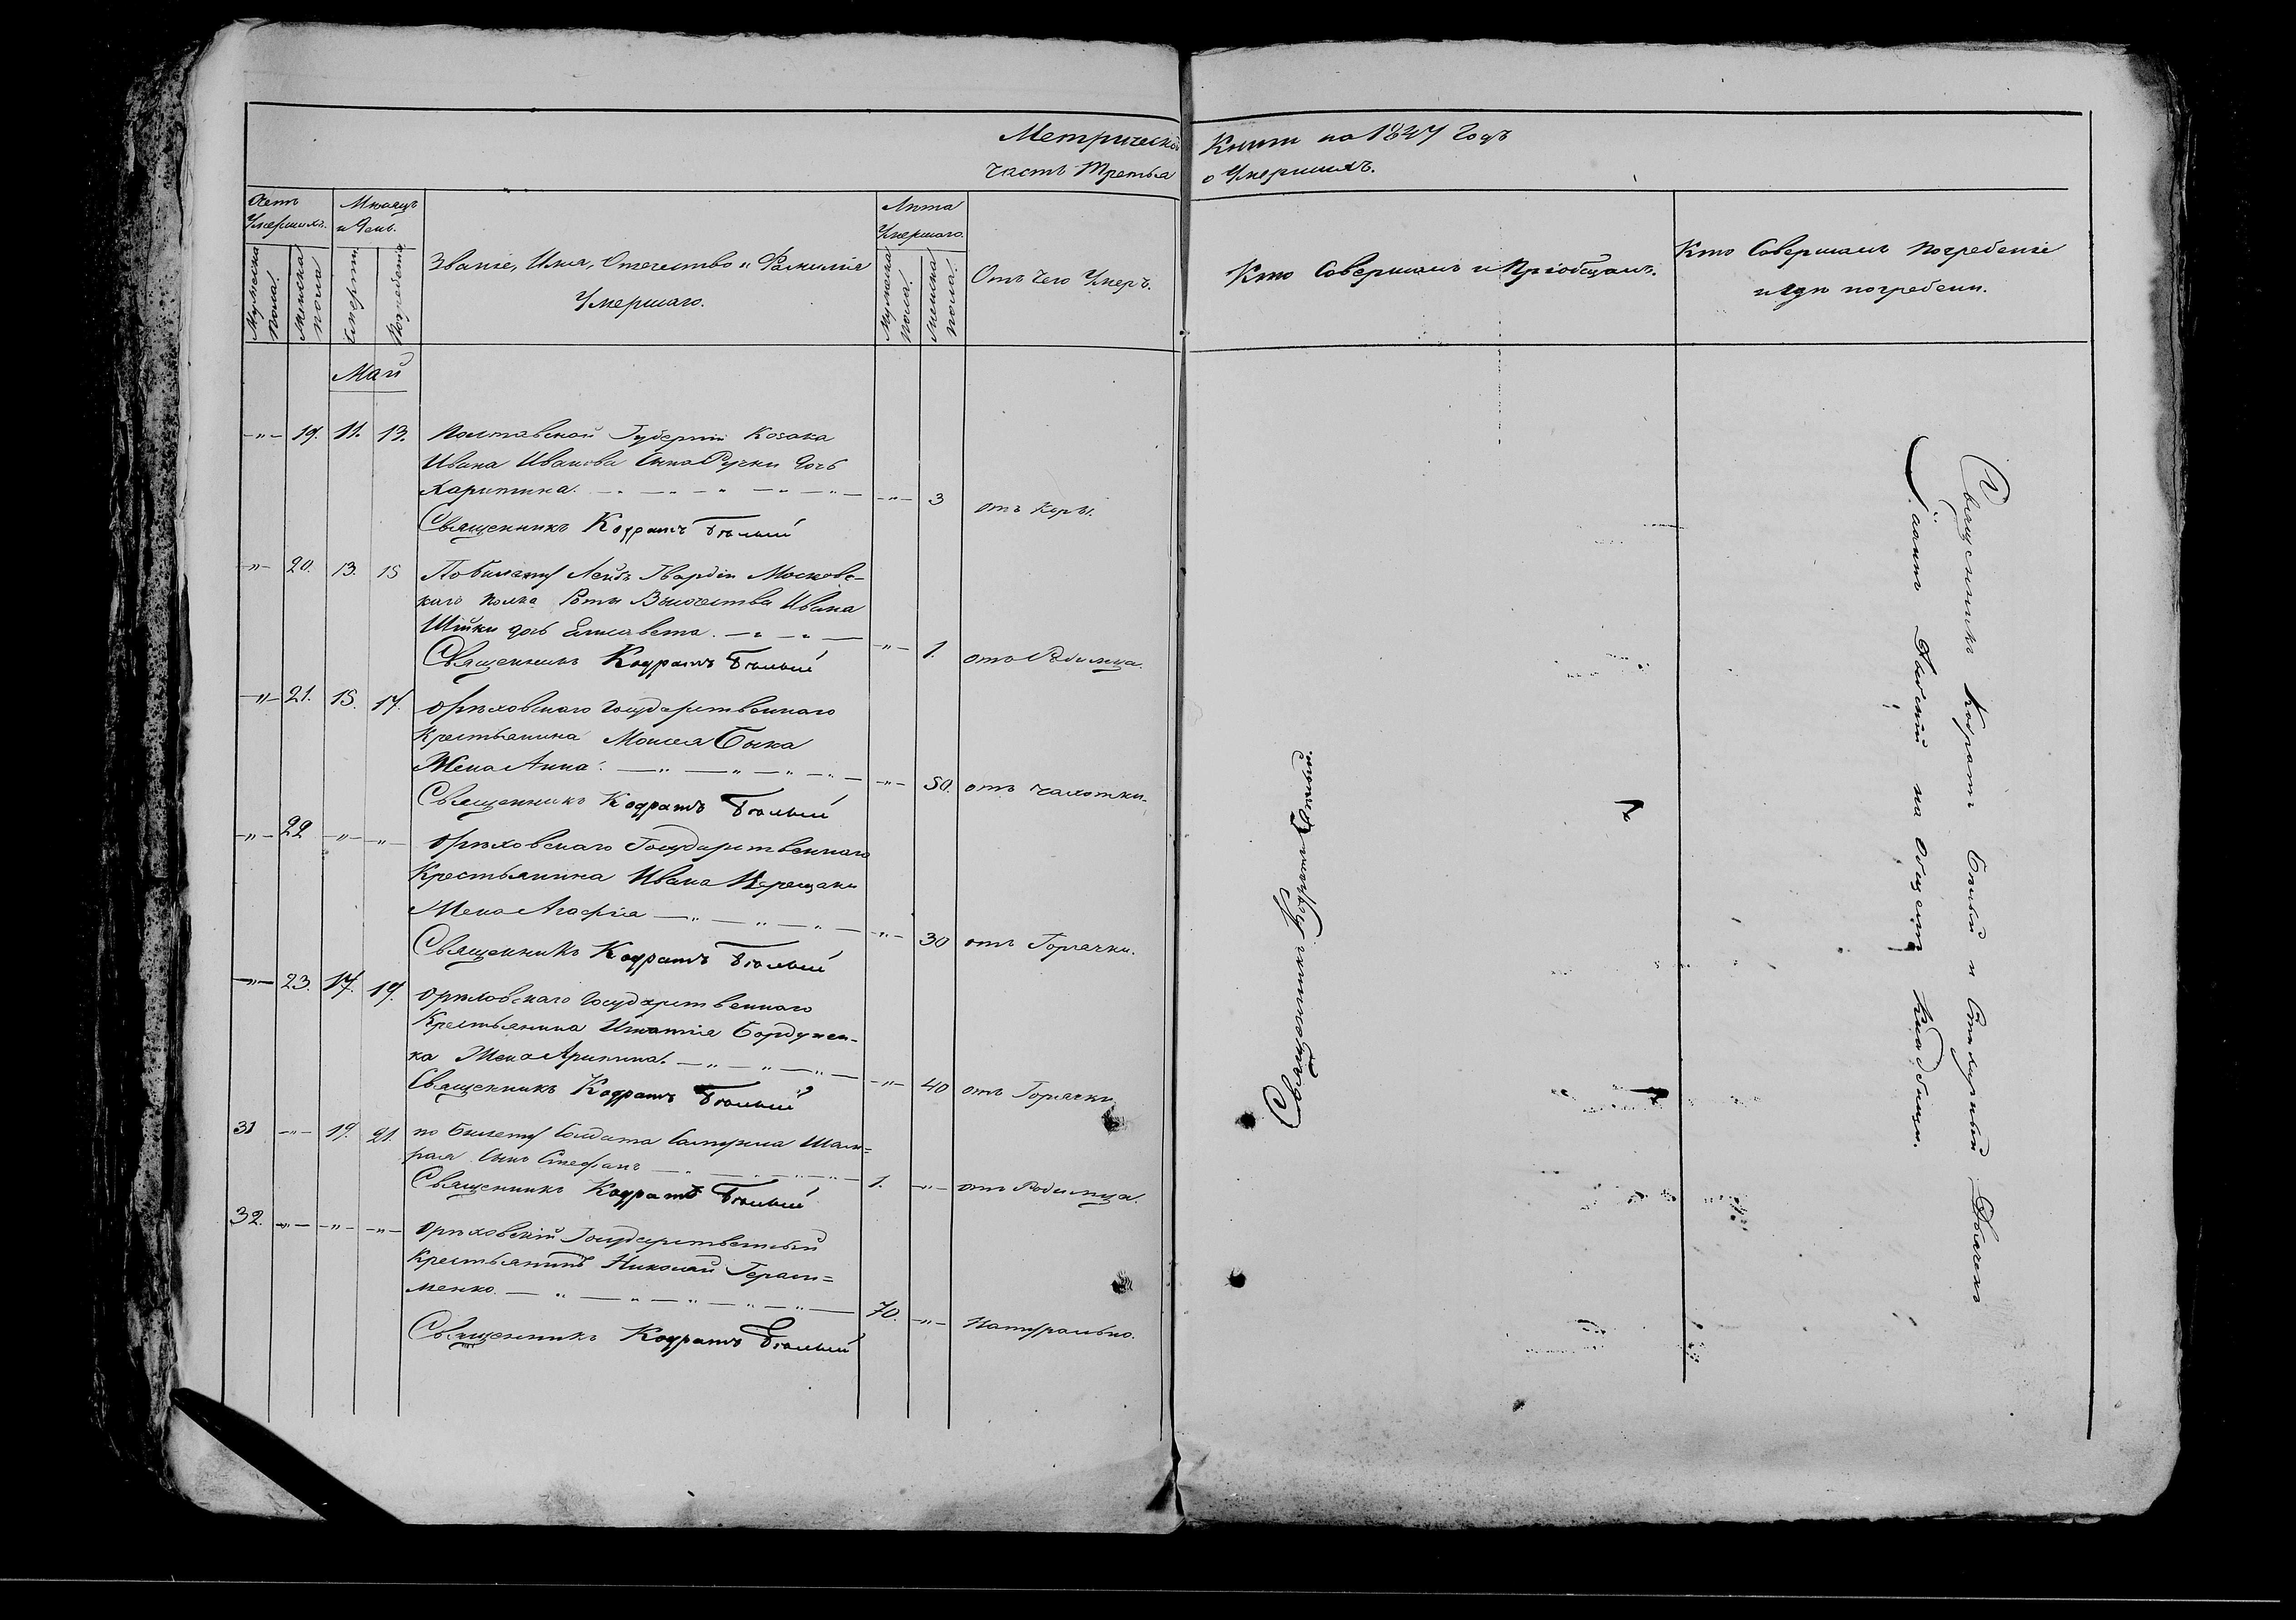 Метрической Книги на 1847 Годъ
Часть Третья о Умершихъ.
Счетъ Умершихъ.
Мужеска пола.
Женска пола
Мѣсяцъ и День.
Смерти
Погребенія
Званіе, Имя, Отечество и Фамилія
Умершаго.
Лѣта Умершаго.
Мужеска пола.
Женска пола.
Отъ Чего Умеръ.
Кто Совершалъ и Пріобщалъ.
Кто Совершалъ Погребеніе
и гдѣ погребены.
Май
—"— 19. 11. 13. Полтавской Губерніи Козака
Ивана Иванова Сына дочь
Харитина. —"— 3 отъ Коры.
Священникъ Кодратъ Бѣлый
—"— 20. 13. 15 По билету Лейбъ Гвардіи Московс-
каго полка Роты Высочества Ивана
Шійки дочь Елисавета. —"— 1. отъ Родимца.
Священникъ Кодратъ Бѣлый
—"— 21. 15. 17. Орѣховскаго Государственнаго
Крестьянина Моисея Быка
Жена Анна. —"— 50. отъ чахотки.
Священникъ Кодратъ Бѣлый
—"— 22 —"— —"— Орѣховскаго Государственнаго
Крестьянина Ивана
Жена Агафія —"— 30 отъ Горячки.
Священникъ Кодратъ Бѣлый
—"— 23. 17. 19. Орѣховскаго Государственнаго
Крестьянина Игнатія
ка Жена —"— 40 отъ Горячки
Священникъ Кодратъ Бѣлый
31 —"— 19. 21. по Билету Солдата
Сынъ Стефанъ 1. —"— отъ Родимца.
Священникъ Кодратъ Бѣлый
32. —"— —"— —"— Орѣховскій Государственный
Крестьянинъ Николай Гераси=
менко. 70. —"— Натурально.
Священникъ Кодратъ Бѣлый
Священникъ Кодратъ Бѣлый.
Священникъ Кодратъ Бѣлый и Дьячекъ
на общемъ Кладбищѣ.